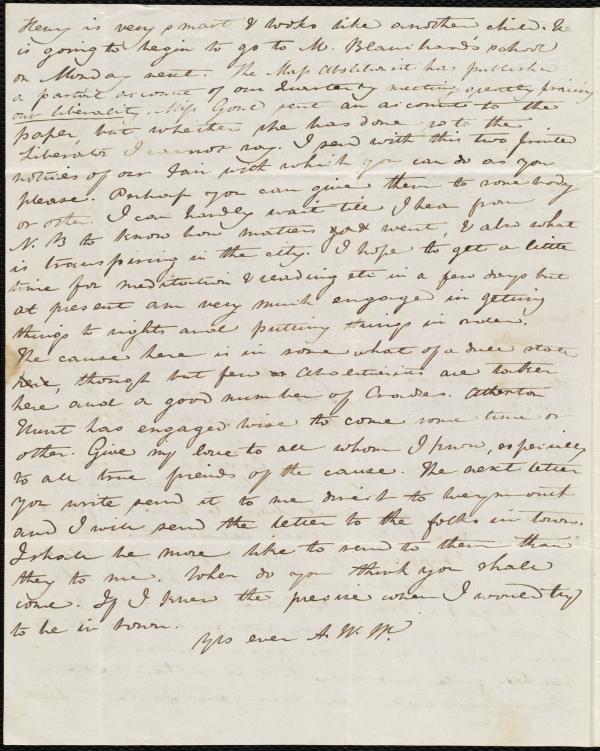 Henry is very smart & looks like another child. He
is going to begin to go to Mr. Blanchard's school
on Monday next. The Mass Abolitionist has published
a partial account of our Quarterly meeting greatly praising
our liberality. Miss Gould sent an account to the
paper, but whether she has done so to the
Liberator I cannot say. I send with this two printed
notices of our Fair with which you can do as you
please. Perhaps you can give them to somebody
or other. I can hardly wait till I hear from
N. B to know how matters went, & also what
is transpiring in the city. I hope to get a little
time for meditation & reading etc in a few days but
at present am very much engaged in getting
things to rights and putting things in order.
The cause here is in some what of a dull state
though but few Abolitionists are
here and a good number of
Hunt has engaged to come some time or
other. Give my love to all whom I know, especially
to all true friends of the cause. The next letter
you write send it to me direct to Weymouth
and I will send the letter to the folks in town.
I shall be more like to send to them than
they to me. When do you think you shall
come. If I knew the precise when I would try
to be in town.
Yrs ever A. W. W.